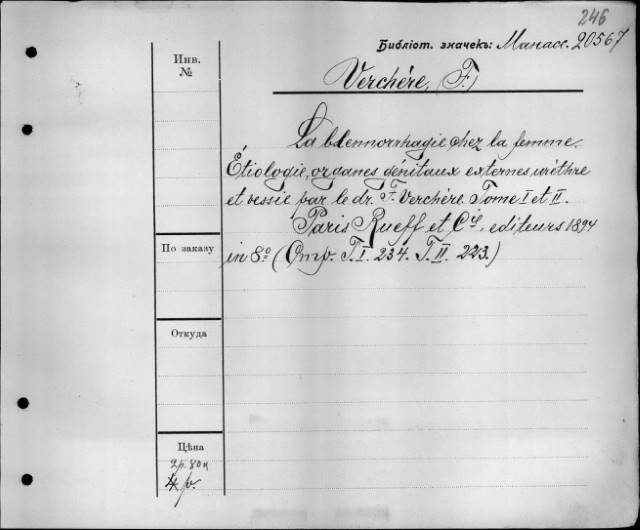 246
Библіот. значекъ: Манасс. 20567
Инв.
№
Verchère, F.)
La blennorrhagie chez la femme.
Étiologie, organes génitaux externes, urèthre
et vessie par le dr. F. Verchère. Tome I et II.
Paris Rueff et Cie, editeurs 1894
По заказу
in 8º (Стр. T. I. 234. T. II. 223.)
Откуда
Цѣна
2р. 80к
4 р.